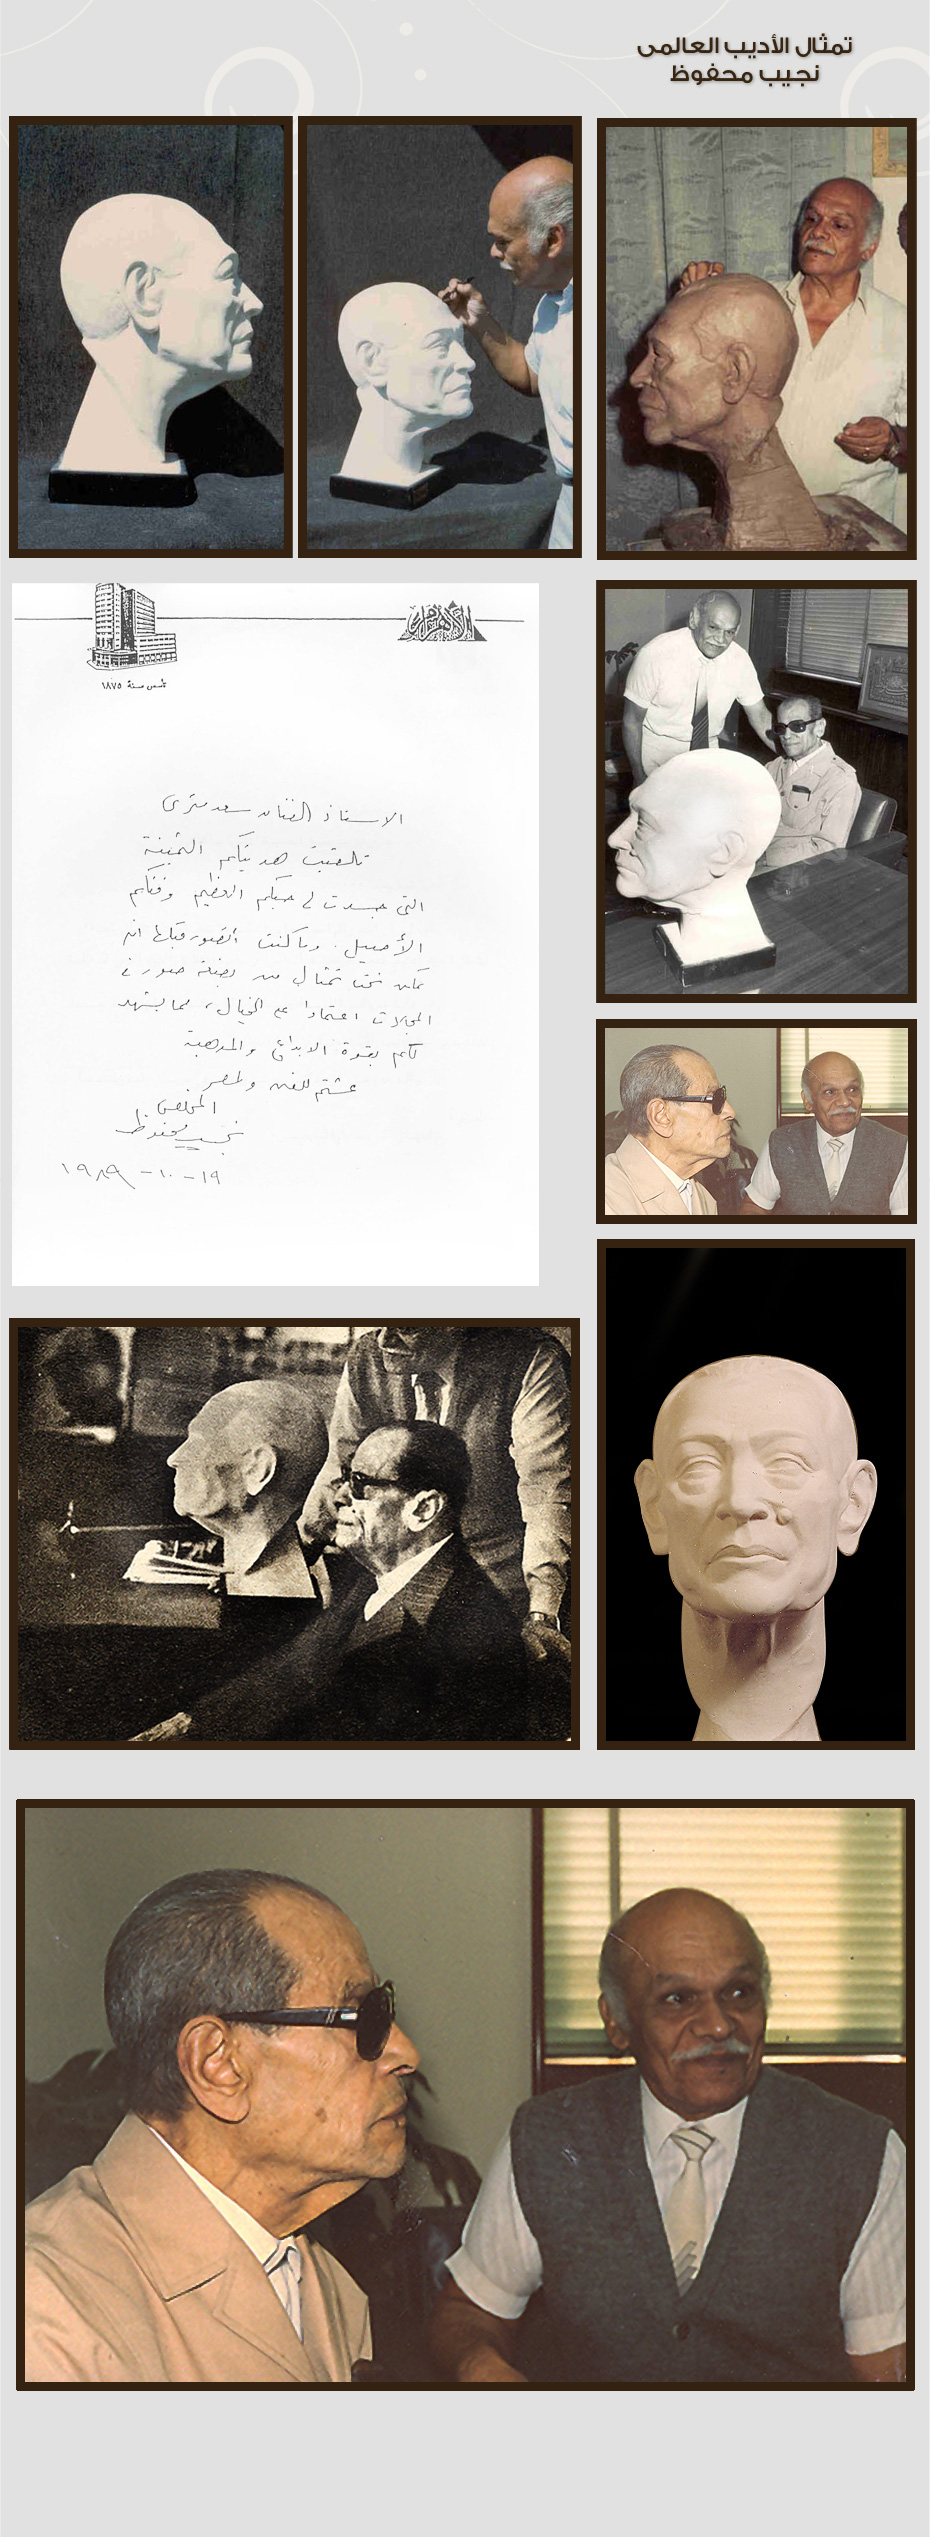 تمثال الأديب العالمى
نجيب محفوظ
الأهرام
تأسس سنة ١٨٧٥
الاستاذ الفنان سعد مترى
تلقيت هديتكم الثمينة
التى جسدت لى حبكم العظيم وفنكم
الأصيل . وما كنت اتصور قبلها انه
يمكن نحت تمثال من بضعة صور فى
المجلات اعتمادا على الخيال، مما يشهد
لكم بقوة الابداع والموهبة
عشتم للفن ولمصر .
المخلص
نجيب محفوظ
١٩ - ١٠ - ١٩٨٩